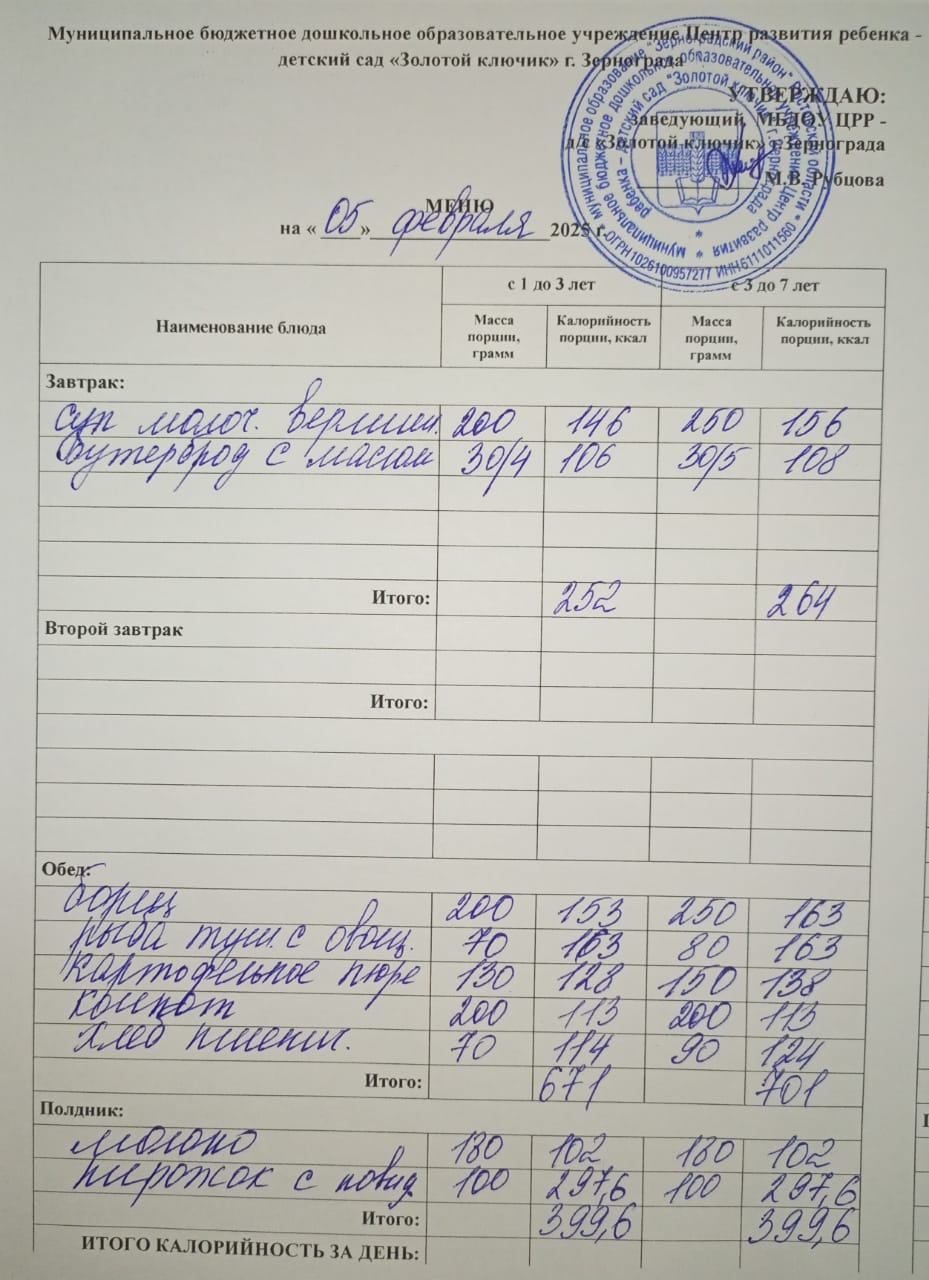 Муниципальное бюджетное дошкольное образовательное учреждение Центр развития ребенка -
детский сад «Золотой ключик» г. Зернограда
УТВЕРЖДАЮ:
Заведующий МБДОУ ЦРР -
д/с «Золотой ключик» г.Зернограда
М.В. Рубцова
МЕНЮ
на « 05 » февраля 2025 г.
муниципальное образование "Зерноградский район" Ростовской области * ОГРН1026100957277 ИНН6111011560 *
муниципальное бюджетное дошкольное образовательное учреждение Центр развития
ребенка – детский сад "Золотой ключик" г.Зернограда
Наименование блюда с 1 до 3 лет с 3 до 7 лет
Масса порции, грамм Калорийность порции, ккал Масса порции, грамм Калорийность порции, ккал
Завтрак:
суп молоч. вермиш. 200 146 250 156
Бутерброд с маслом 30/4 106 30/5 108
Итого: 252 264
Второй завтрак
Итого:
Обед:
борщ 200 153 250 163
рыба туш. с овощ. 70 163 80 163
картофельное пюре 130 128 150 138
компот 200 113 200 113
хлеб пшенич. 70 114 90 124
Итого: 671 701
Полдник:
молоко 180 102 180 102
пирожок с повид. 100 297,6 100 297,6
Итого: 399,6 399,6
ИТОГО КАЛОРИЙНОСТЬ ЗА ДЕНЬ: